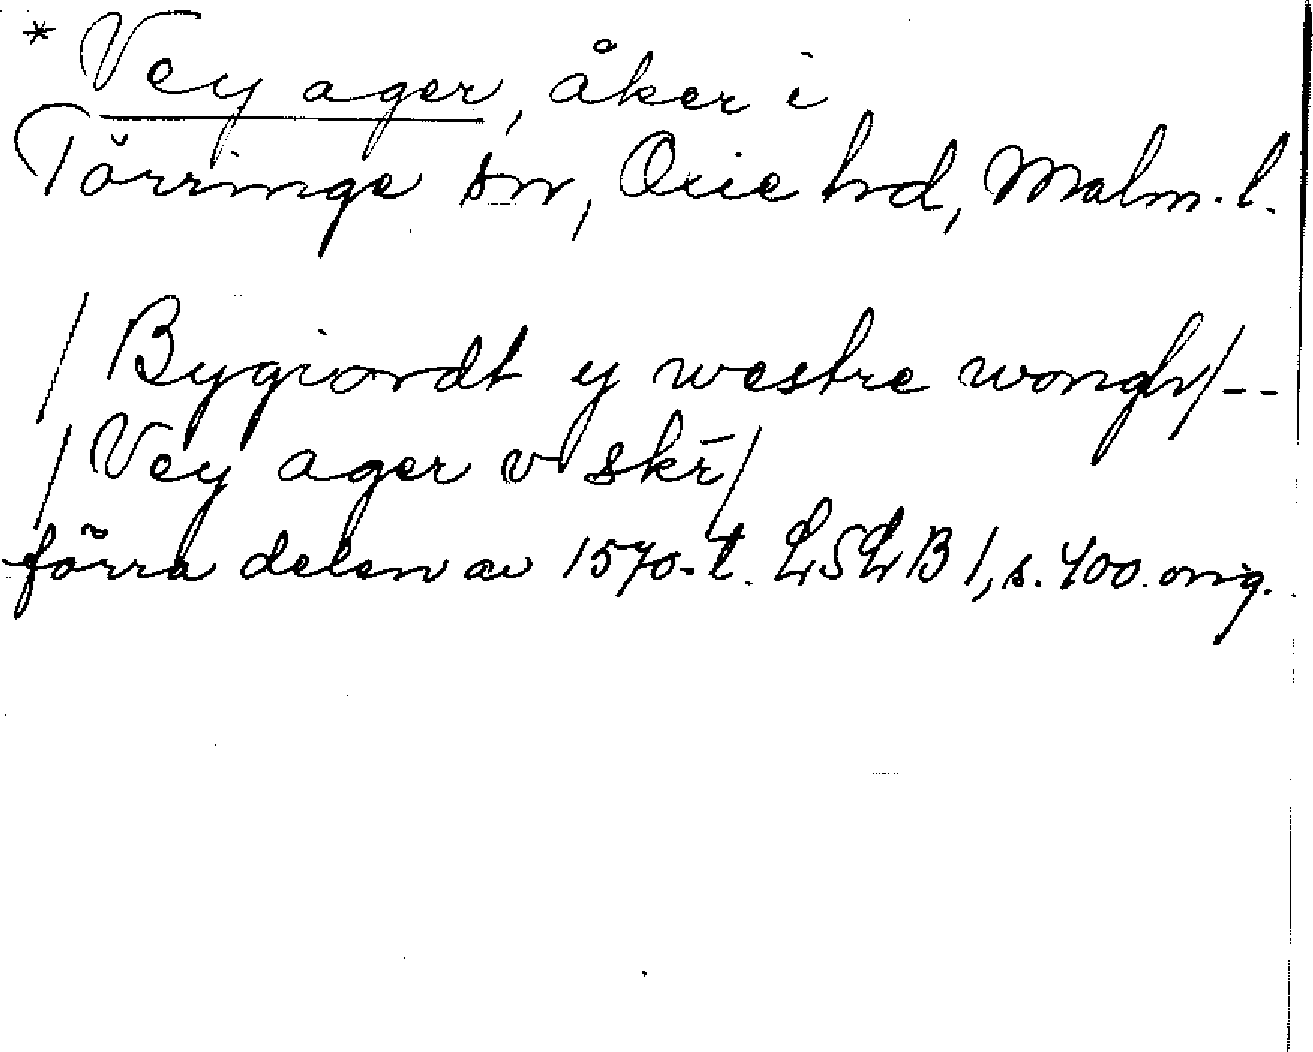 * Vey ager, åker i
Törringe sn, Oxie hd, Malm. l.
/ Bygiordt y westre wongh / --
/ Vey ager v skr̄ /
förra delen av 1570-t. LSLB 1, s. 400. orig.